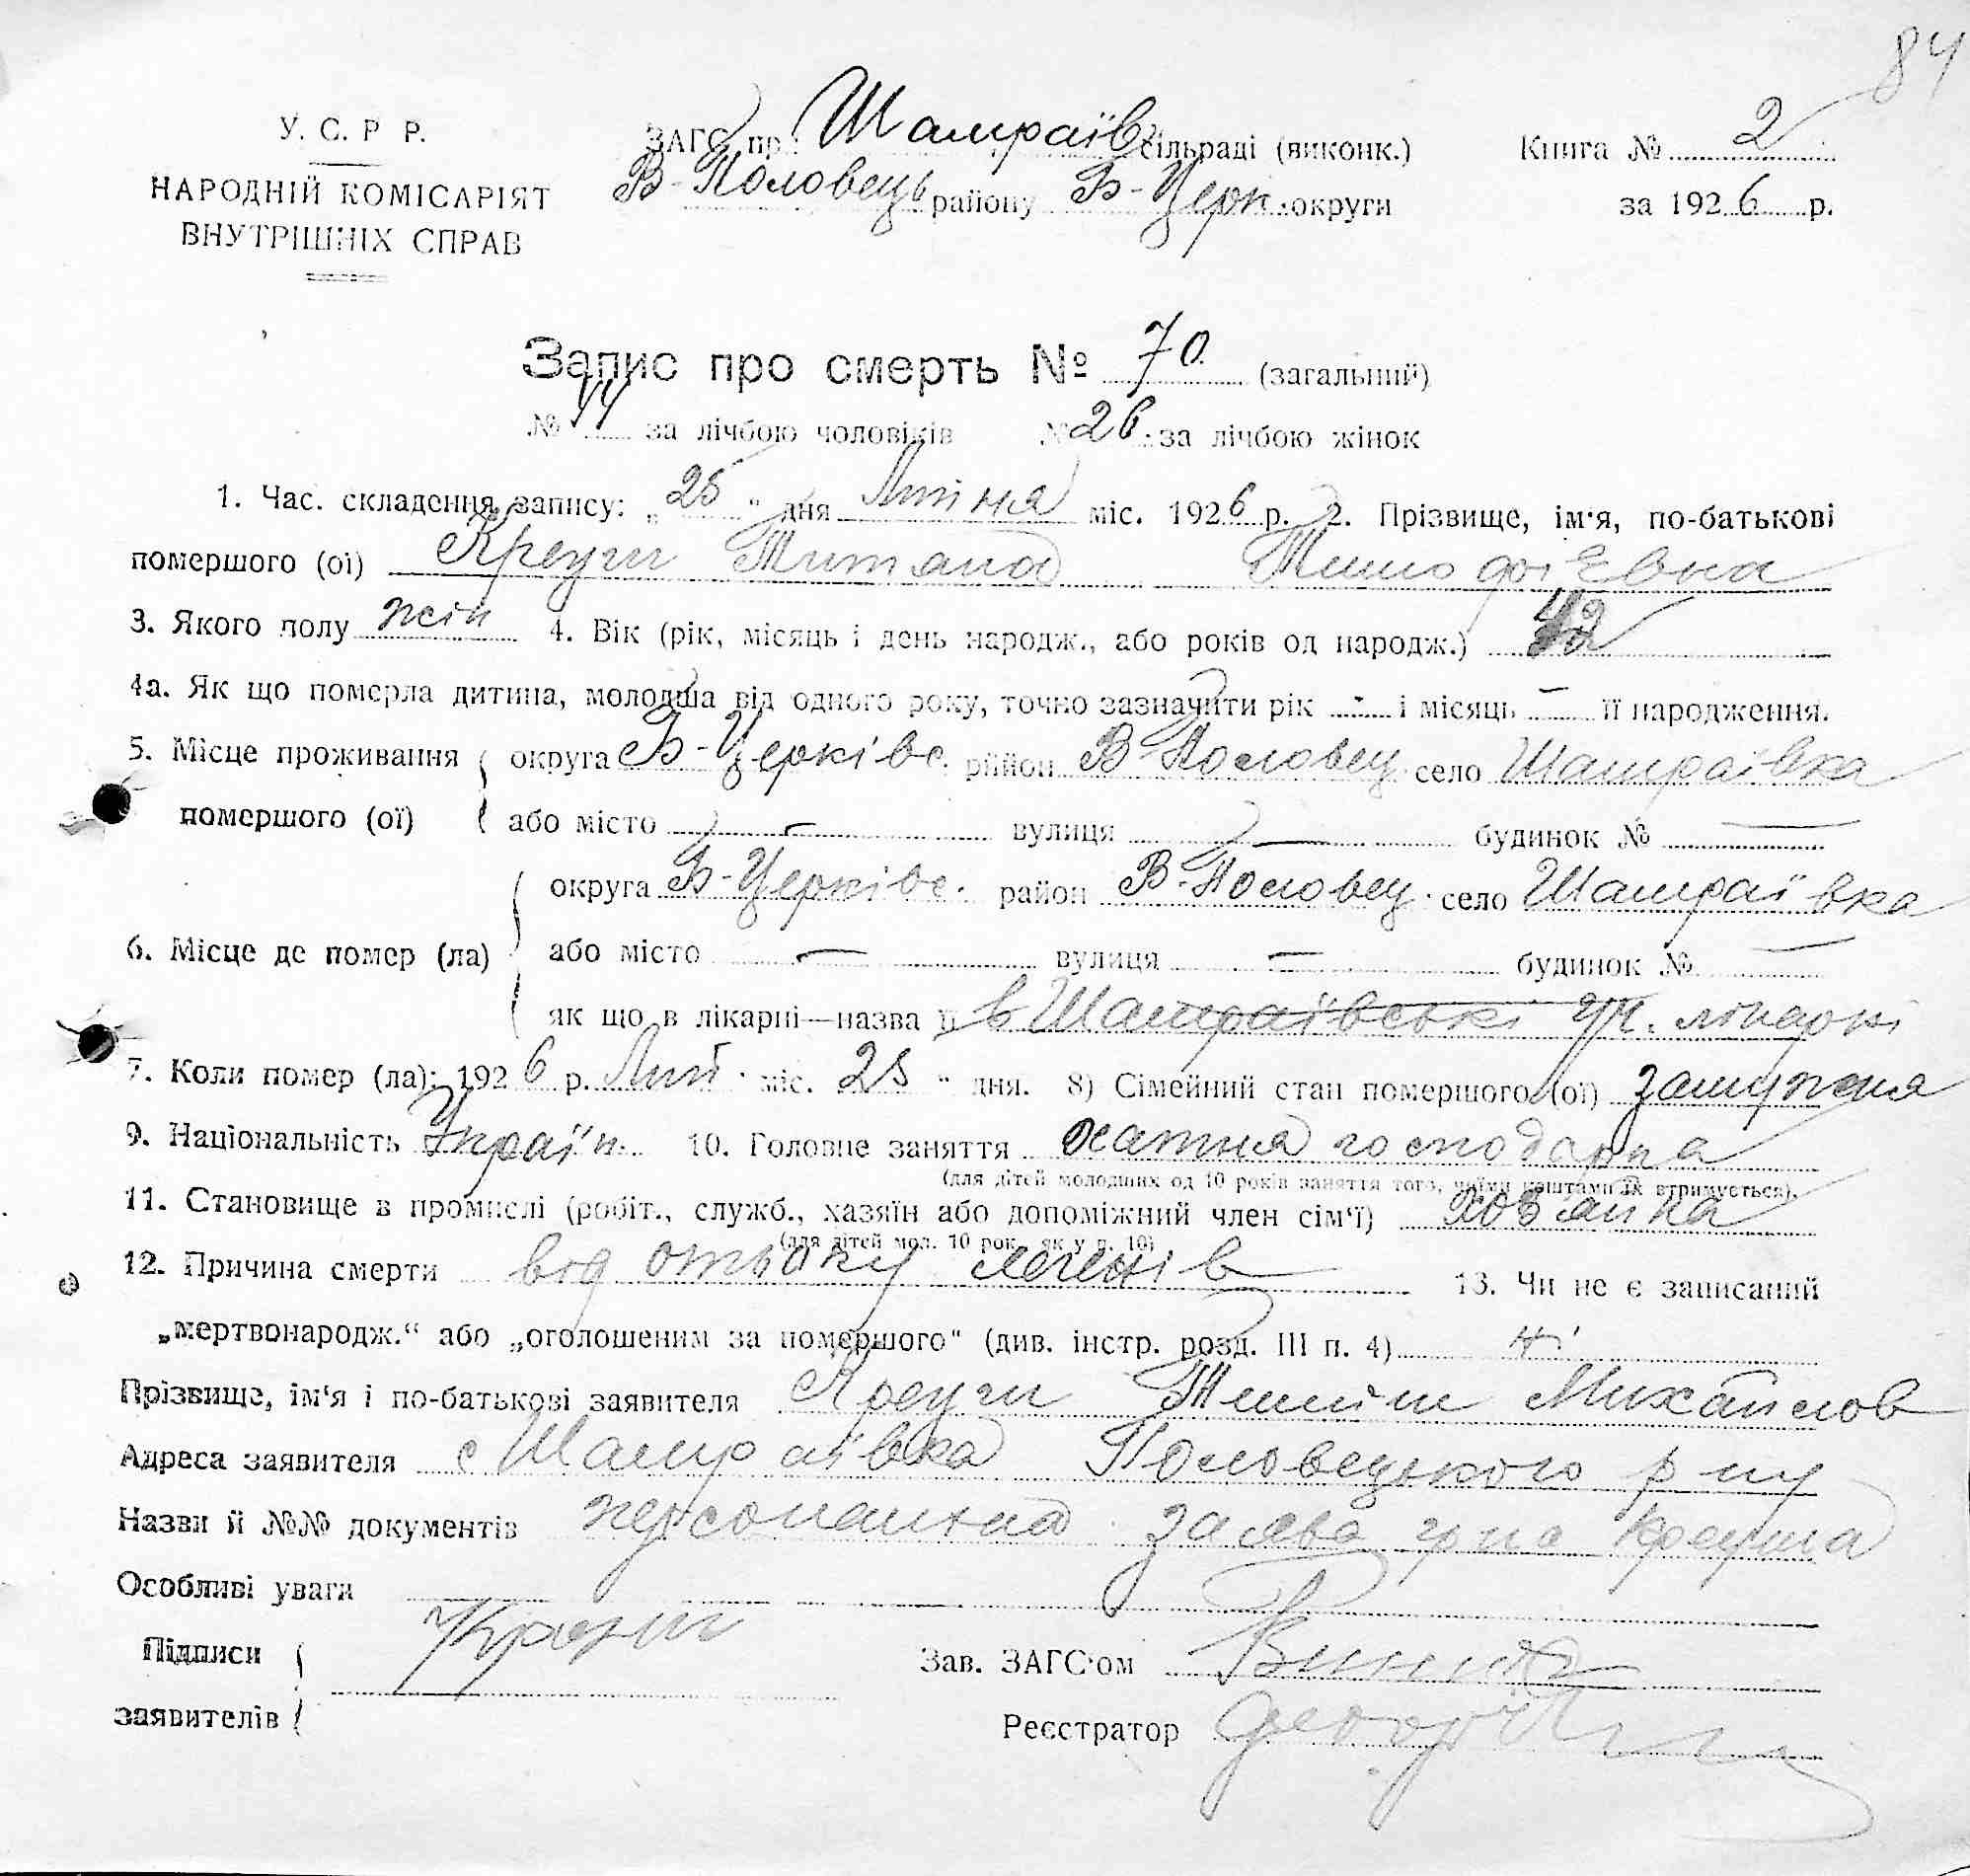 84
У. С. Р Р.
НАРОДНІЙ КОМІСАРІЯТ
ВНУТРІШНІХ СПРАВ
ЗАГС пр. Шамраїв сільраді (виконк.)
В-Половець району Б-Церк. округи
Книга № 2
за 1926 р.
Запис про смерть № 70 (загальний)
№ 44 за лічбою чоловіків № 26 за лічбою жінок
1. Час. складення запису: „25" дня Липня міс. 1926 р. 2. Прізвище, ім'я, по-батькові
помершого (ої) Креуги
3. Якого полу жін 4. Вік (рік, місяць і день народж., або років од народж.) 42
4а. Як що померла дитина, молодша від одного року, точно зазначити рік - і місяць - її народження.
5. Місце проживання округа Б-Церківс. район В-Половец. село Шамраївка
помершого (ої) або місто — вулиця — будинок № —
округа Б-Церківс. район В-Половец. село Шамраївка
6. Місце де помер (ла) або місто — вулиця — будинок № —
як що в лікарні—назва її в Шамраївські лікарні
7. Коли помер (ла): 1926 р. Лип. міс. 25 " дня. 8) Сімейний стан помершого (ої) замужня
9. Національність Україн. 10. Головне заняття хатня господарка
(для дітей молодших од 10 років заняття того, чиїми коштами їх втримується).
11. Становище в промислі (робіт., служб., хазяїн або допоміжний член сім'ї)
(для дітей мол. 10 рок. як у п. 10)
12. Причина смерти від отьоку легенів 13. Чи не є записаний
„мертвонародж.“ або „оголошеним за помершого“ (див. інстр. розд. III п. 4) ні
Прізвище, ім'я і по-батькові заявителя Креуги Михайлов
Адреса заявителя с Шамраївка Половецького р ну
Назви й №№ документів персональна заява гр на Креуга
Особливі уваги
Підписи
заявителів
Зав. ЗАГС'ом
Реєстратор